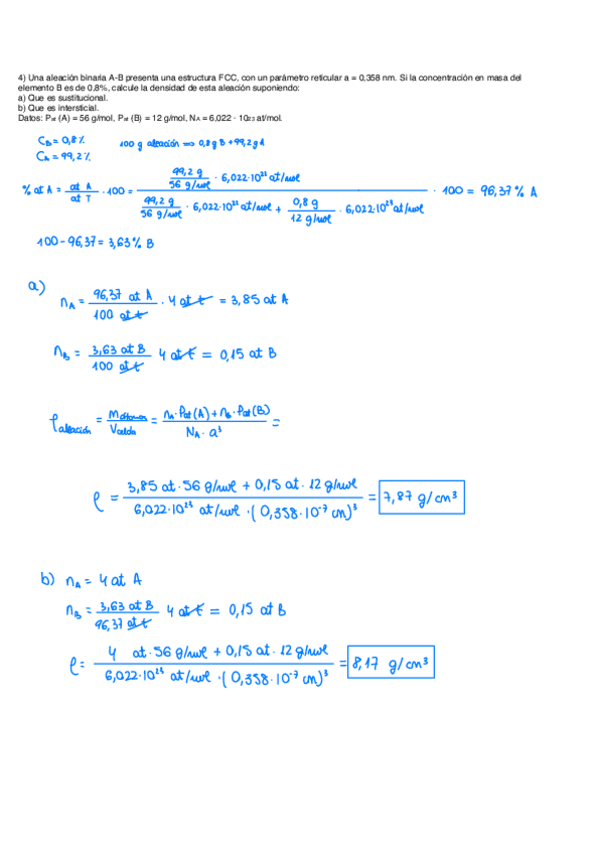 4) Una aleación binaria A-B presenta una estructura FCC, con un parámetro reticular a = 0,358 nm. Si la concentración en masa del
elemento B es de 0,8%, calcule la densidad de esta aleación suponiendo:
a) Que es sustitucional.
b) Que es intersticial.
Datos: Pat (A) = 56 g/mol, Pat (B) = 12 g/mol, NA = 6,022 · 1023 at/mol.
CB = 0,8 %
100 g aleación ⇒ 0,8 g B + 99,2 g A
CA = 99,2 %
% at A = at A / at T · 100 = (99,2 g / 56 g/mol · 6,022·10²³ at/mol) / (99,2 g / 56 g/mol · 6,022·10²³ at/mol + 0,8 g / 12 g/mol · 6,022·10²³ at/mol) · 100 = 96,37 % A
100 - 96,37 = 3,63 % B
a) nA = 96,37 at A / 100 at t · 4 at t = 3,85 at A
nB = 3,63 at B / 100 at t 4 at t = 0,15 at B
ρaleación = Mátomos / Vcelda = nA · Pat (A) + nB · Pat (B) / NA · a³ =
ρ = 3,85 at · 56 g/mol + 0,15 at · 12 g/mol / 6,022·10²³ at/mol · (0,358·10⁻⁷ cm)³ = 7,87 g/cm³
b) nA = 4 at A
nB = 3,63 at B / 96,37 at t 4 at t = 0,15 at B
ρ = 4 at · 56 g/mol + 0,15 at · 12 g/mol / 6,022·10²³ at/mol · (0,358·10⁻⁷ cm)³ = 8,17 g/cm³